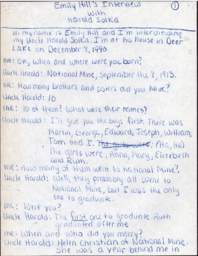 Emily Hill's Interview
with
Harold Solka
1
Hi my name is Emily Hill and I'm interviewing
my Uncle Harold Solka. I'm at his house in Deer
Lake on December 8, 1990
me: OK, When and where were you born?
Uncle Harold: National Mine, September 8, 1913.
me: How many brothers and sisters did you have?
Uncle Harold: 10
me: 10 of them? What were their names?
Uncle Harold: I'll give you the boys first. There was
Martin, George, Edward, Joseph, William,
Tom and I. (Ha, Ha)
The girls were; Anna, Mary, Elizabeth
and Rum.
me: How many of them went to National Mine?
Uncle Harold: Well, they probably all went to
National Mine, but I was the only
one to graduate.
me: Were you?
Uncle Harold: The first one to graduate. Ruth
graduated after me
me: When and who did you marry?
Uncle Harold: Helen Christian of National Mine.
She was a year behind me in